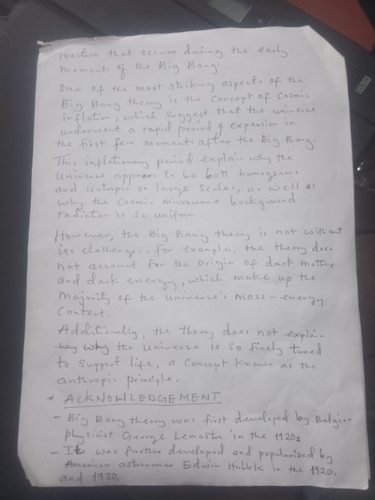 reaction that occurs during the early
moments of the Big Bang.
One of the most striking aspects of the
Big Bang theory is the concept of Cosmic
inflation, which suggest that the universe
underwent a rapid period of expansion in
the first few moments after the Big Bang.
This inflationary period explain why the
Universe appears to be both homogenous
and isotropic on large scales, as well as
why the Cosmic microwave background
radiation is so uniform
However, the Big Bang theory is not without
its challenges. for example, the theory does
not account for the origin of dark matter
and dark energy, which make up the
majority of the universe's mass-energy
content.
Additionally, the theory does not explain
why why the universe is so finely tuned
to support life, a concept known as the
anthropic principle.
* ACKNOWLEDGEMENT
- Big Bang theory was first developed by Belgian
physicist George Lemaitre in the 1920s
- It was further developed and popularised by
American astronomer Edwin Hubble in the 1920s
and 1930.